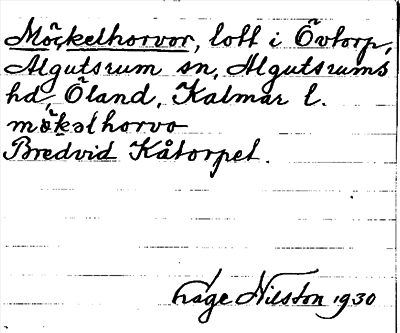 Möckelhorvor, lott i Övtorp,
Algutsrum sn, Algutsrums
hd, Öland, Kalmar l.
mökəlhorvo
Bredvid Kåtorpet.
Hage Nilston 1930